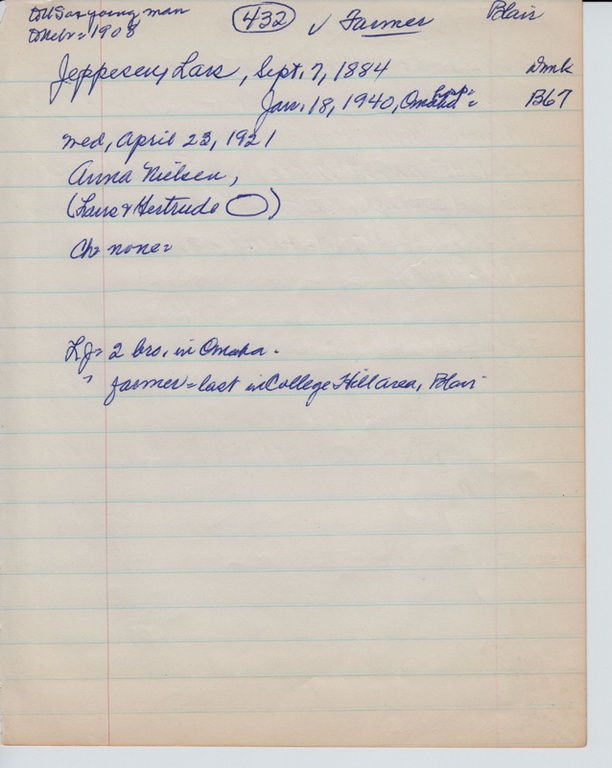 to US as young man
to Nebr = 1908
432 ✓ Farmer Blair
Jeppesen, Lars, Sept. 7, 1884 Dmk
Jan. 18, 1940, Omaha Hosp= B67
wed, April 23, 1921
Anna Nielsen,
(Lars & Gertrude)
Ch= none=
L.J= 2 bro. in Omaha.
" farmer = last in College Hill area, Blair